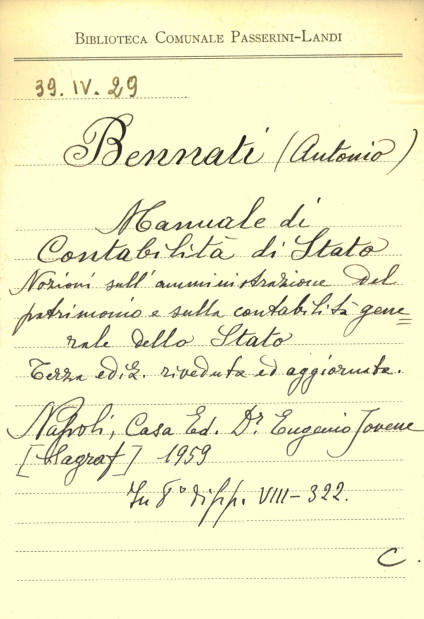 BIBLIOTECA COMUNALE PASSERINI-LANDI
39. IV. 29
Bennati (Antonio)
Manuale di
Contabilità di Stato
Nozioni sull'amministrazione del
patrimonio e sulla contabilità gene=
rale dello Stato
Terza ediz. riveduta ed aggiornata.
Napoli, Casa Ed. Dr. Eugenio Jovene
[Sagraf] 1959
In 8° di pp. VIII-322.
C.